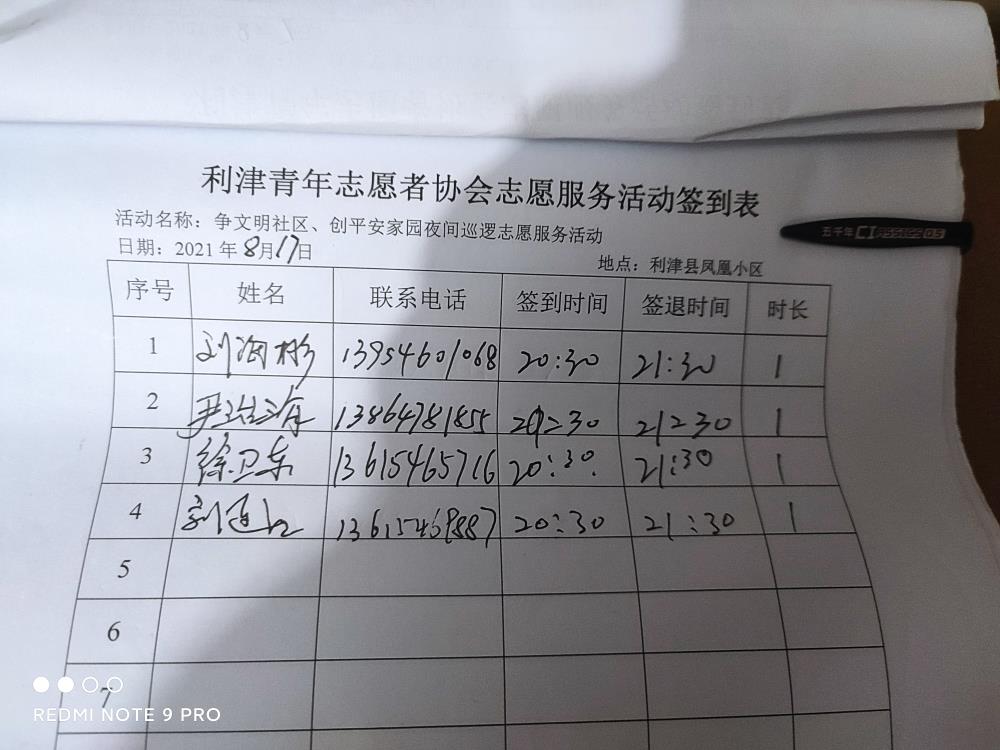 利津青年志愿者协会志愿服务活动签到表
活动名称：争文明社区、创平安家园夜间巡逻志愿服务活动
日期：2021年8月17日
地点：利津县凤凰小区
序号 姓名 联系电话 签到时间 签退时间 时长
1 刘海彬 13954601068 20:30 21:30 1
2 13864781855 20:30 21:30 1
3 徐卫东 13615465716 20:30 21:30 1
4 20:30 21:30 1
5
6
7
五千年
REDMI NOTE 9 PRO